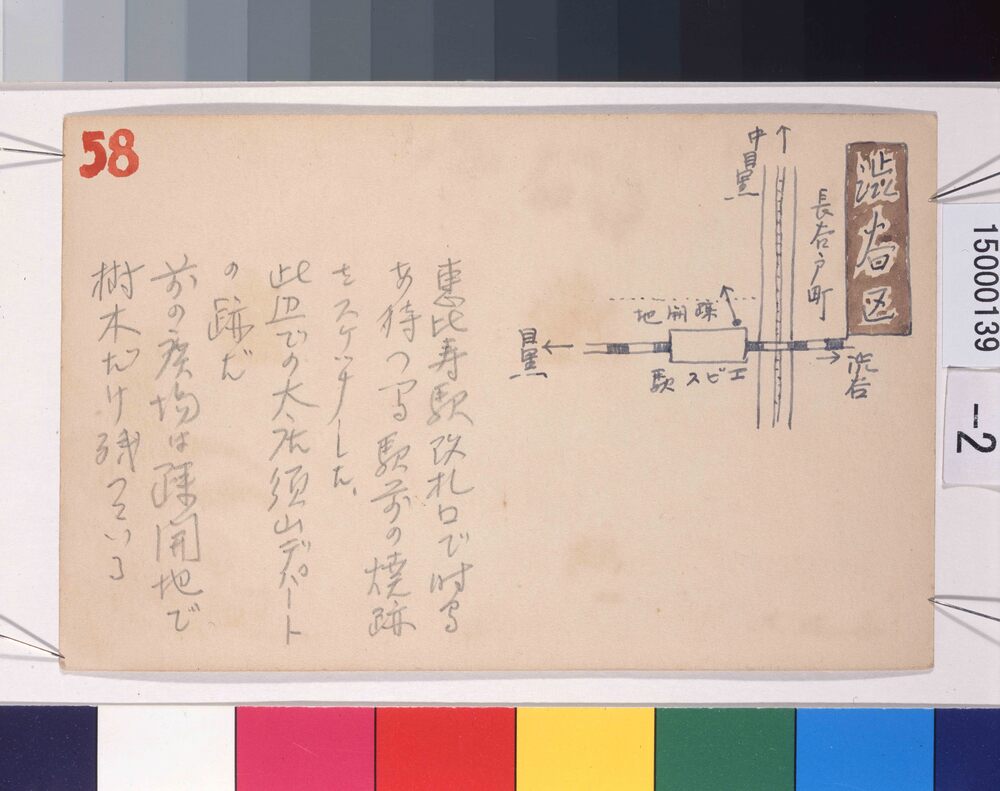 58
渋谷区
長谷戸町
中目黒
疎開地
エビス駅
目黒
渋谷
恵比寿駅改札口で時間
を待つ間駅前の焼跡
をスケッチした。
此辺での大店須山デパート
の跡だ
前の廣場は疎開地で
樹木だけ残っている
15000139
-2